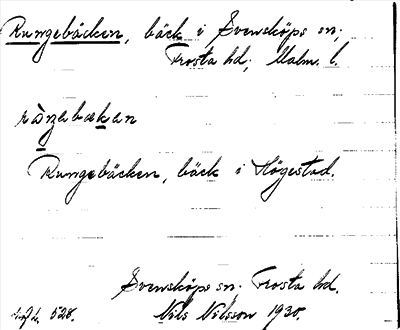 Rungebäcken, bäck i Svensköps sn;
Frosta hd; Malm. l.
Rungebäcken, bäck i Högestad.
Svensköps sn. Frosta hd.
528. Nils Nilsson 1930.